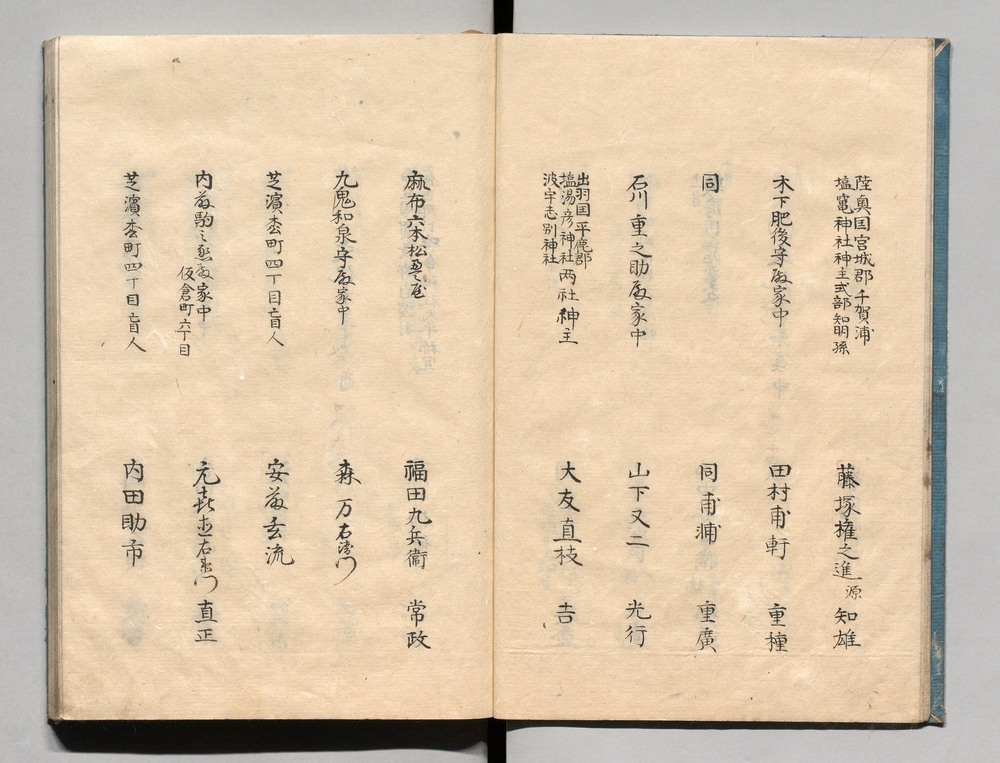 陸奥国宮城郡千賀浦
塩竃神社神主式部知明孫
藤塚権之進 源 知雄
木下肥後守殿家中
田村甫軒 重種
同
同甫浦 重廣
石川重之助殿家中
山下又二 光行
出羽国平鹿郡
塩湯彦神社両社神主
波宇志別神社
大友直枝 吉
麻布六本松
福田九兵衛 常政
九鬼和泉守殿家中
森万右衛門
芝濱松町四丁目盲人
安藤玄流
内藤駒之丞殿家中
仮倉町六丁目
元㐂直右衛門 直正
芝濱松町四丁目盲人
内田助市